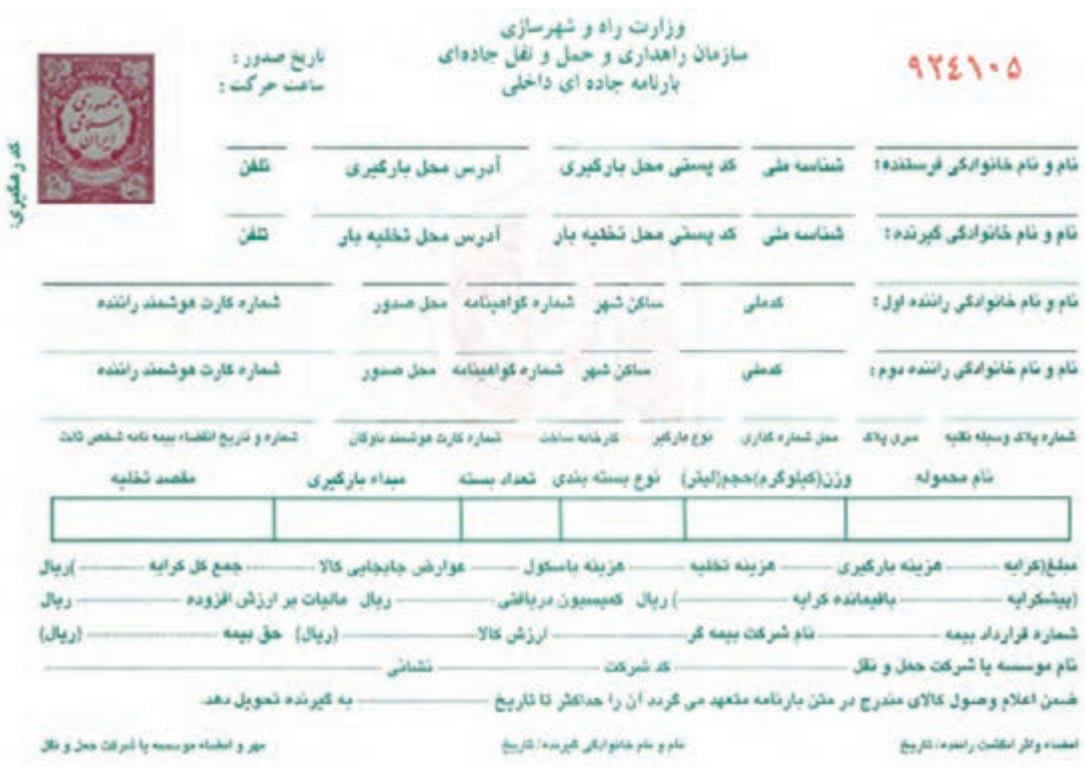 وزارت راه و شهرسازی
سازمان راهداری و حمل و نقل جاده‌ای
بارنامه جاده ای داخلی
۹۲٤۱۰۵
تاریخ صدور :
ساعت حرکت :
جمهوری
اسلامی
ایران
کد رهگیری:
نام و نام خانوادگی فرستنده: شناسه ملی کد پستی محل بارگیری آدرس محل بارگیری تلفن
نام و نام خانوادگی گیرنده: شناسه ملی کد پستی محل تخلیه بار آدرس محل تخلیه بار تلفن
نام و نام خانوادگی راننده اول: کدملی ساکن شهر شماره گواهینامه محل صدور شماره کارت هوشمند راننده
نام و نام خانوادگی راننده دوم: کدملی ساکن شهر شماره گواهینامه محل صدور شماره کارت هوشمند راننده
شماره پلاک وسیله نقلیه سری پلاک محل شماره گذاری نوع بارگیر کارخانه ساخت شماره کارت هوشمند ناوگان شماره و تاریخ انقضاء بیمه نامه شخص ثالث
نام محموله وزن(کیلوگرم)حجم(لیتر) نوع بسته بندی تعداد بسته مبداء بارگیری مقصد تخلیه
مبلغ(کرایه هزینه بارگیری هزینه تخلیه هزینه باسکول عوارض جابجایی کالا جمع کل کرایه )ریال
(پیشکرایه باقیمانده کرایه ) ریال کمیسیون دریافتی ریال مالیات بر ارزش افزوده ریال
شماره قرارداد بیمه نام شرکت بیمه گر ارزش کالا (ریال) حق بیمه (ریال)
نام موسسه یا شرکت حمل و نقل کد شرکت نشانی
ضمن اعلام وصول کالای مندرج در متن بارنامه متعهد می گردد آن را حداکثر تا تاریخ به گیرنده تحویل دهد.
امضاء واثر انگشت راننده/ تاریخ نام و نام خانوادگی گیرنده/ تاریخ مهر و امضاء موسسه یا شرکت حمل و نقل